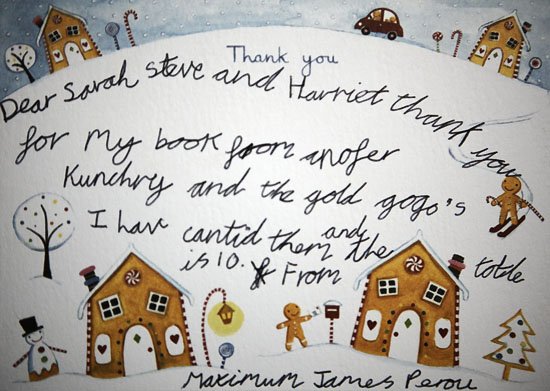 Thank you
Dear Sarah Steve and Harriet thank you
for My book from anofer
Kunchry and the gold gogo's
I have cantid them and the totle
is 10. From
Maximum James Perou